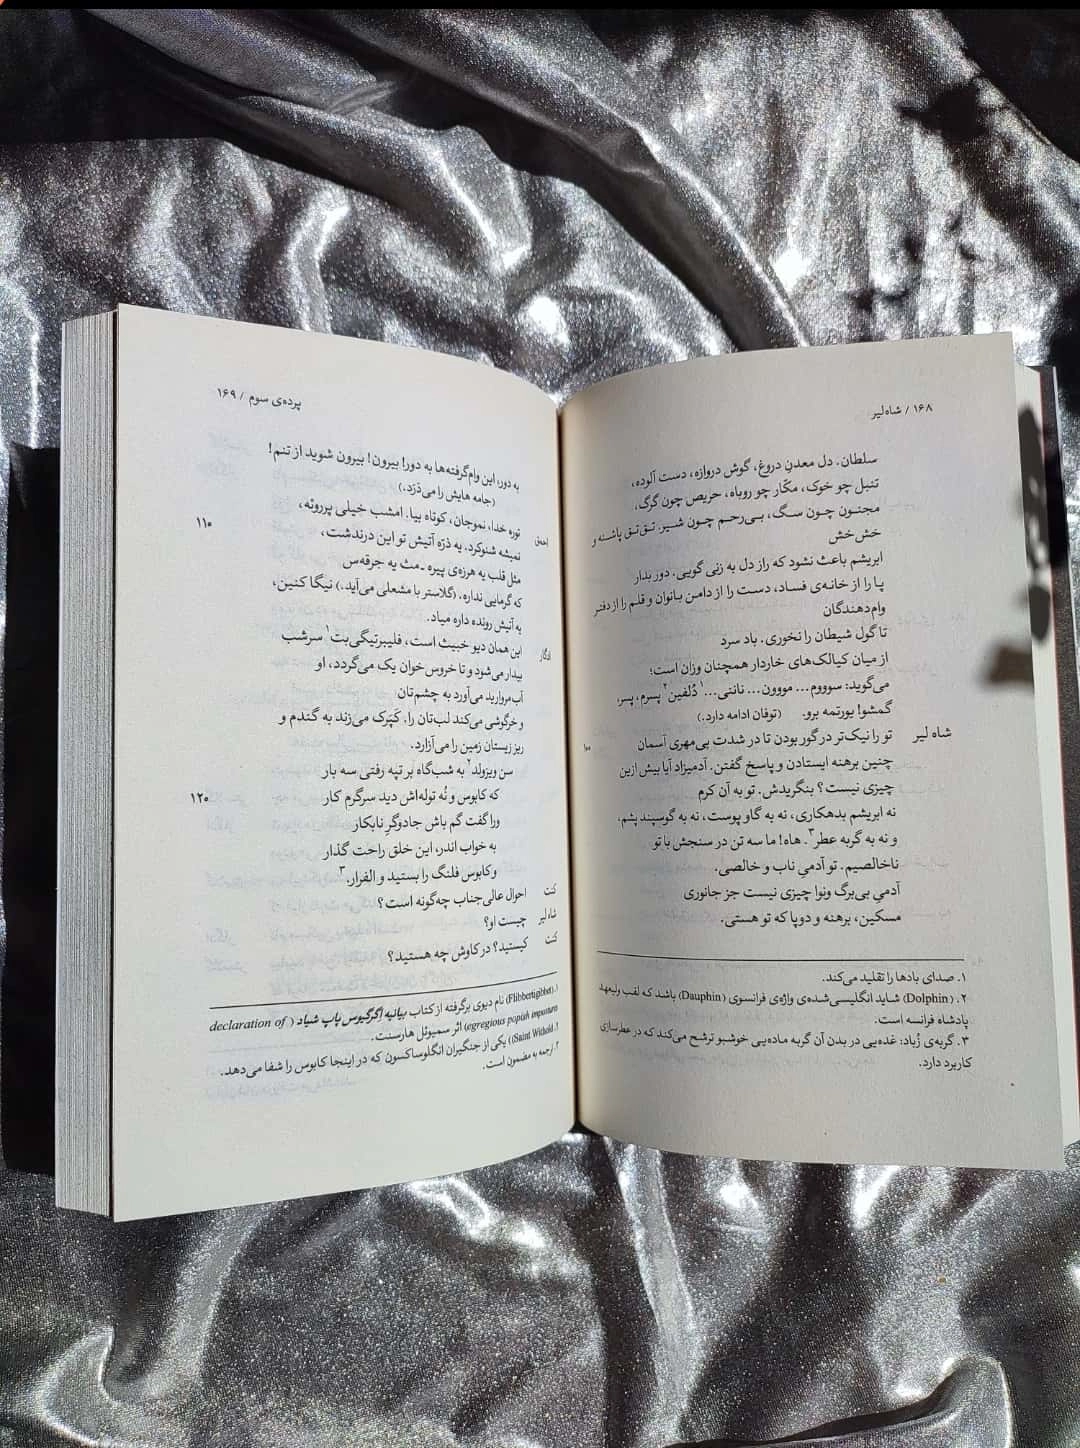 ۱۶۸ / شاه‌لیر
سلطان. دل معدنِ دروغ، گوش دروازه، دست آلوده،
تنبل چو خوک، مکّار چو روباه، حریص چون گرگ،
مجنون چون سگ، بی‌رحم چون شیر. تق‌تق پاشنه و
خش‌خش
ابریشم باعث نشود که راز دل به زنی گویی. دور بدار
پا را از خانه‌ی فساد، دست را از دامن بانوان و قلم را از دفتر
وام‌دهندگان
تا گول شیطان را نخوری. باد سرد
از میان کیالک‌های خاردار همچنان وزان است؛
می‌گوید: سوووم... مووون... نانی...۱ دُلفین۲ پسرم، پسر،
گمشو! یورتمه برو. (توفان ادامه دارد.)
شاه لیر تو را نیک‌تر در گور بودن تا در شدت بی‌مهری آسمان ۱۰۰
چنین برهنه ایستادن و پاسخ گفتن. آدمیزاد آیا بیش ازین
چیزی نیست؟ بنگریدش. تو به آن کرم
نه ابریشم بدهکاری، نه به گاو پوست، نه به گوسپند پشم،
و نه به گربه عطر۳. هاه! ما سه تن در سنجش با تو
ناخالصیم. تو آدمیِ ناب و خالصی.
آدمیِ بی‌برگ ونوا چیزی نیست جز جانوری
مسکین، برهنه و دوپا که تو هستی.
۱. صدای بادها را تقلید می‌کند.
۲. (Dolphin) شاید انگلیسی‌شده‌ی واژه‌ی فرانسوی (Dauphin) باشد که لقب ولیعهد
پادشاه فرانسه است.
۳. گربه‌ی زُباد: غده‌یی در بدن آن گربه ماده‌یی خوشبو ترشح می‌کند که در عطرسازی
کاربرد دارد.
پرده‌ی سوم / ۱۶۹
به دور، این وام‌گرفته‌ها به دور! بیرون! بیرون شوید از تنم!
(جامه هایش را می‌دَرَد.)
احمق توره خدا، نموجان، کوتاه بیا. امشب خیلی پرروئه، ۱۱۰
نمیشه شنوکرد. یه ذرّه آتیش تو این درندشت،
مثل قلب یه هرزه‌ی پیره - مث یه جرقه‌س
که گرمایی نداره. (گلاستر با مشعلی می‌آید.) نیگا کنین،
یه آتیش رونده داره میاد.
ادگار این همان دیو خبیث است، فلیبرتیگی‌بت۱ سرشب
بیدار می‌شود و تا خروس خوان یک می‌گردد، او
آب مروارید می‌آورد به چشم‌تان
و خرگوشی می‌کند لب‌تان را. کَپَرک می‌زند به گندم و
ریز زیستان زمین را می‌آزارد.
سن ویزولد۲ به شب‌گاه بر تپه رفتی سه بار
که کابوس و نُه توله‌اش دید سرگرم کار ۱۲۰
ورا گفت گم باش جادوگرِ نابکار
به خواب اندر، این خلق راحت گذار
وکابوس فلنگ را بستید و الفرار.۳
کنت احوال عالی‌جناب چه‌گونه است؟
شاه لیر چیست او؟
کنت کیستید؟ در کاوش چه هستید؟
۱. (Flibbertigibbet) نام دیوی برگرفته از کتاب بیانیه اِگرگیوس پاپ شیاد (declaration of
egregious popish impostures) اثر سمیوئل هارسنت.
۲. (Saint Withold) یکی از جنگیران انگلوساکسون که در اینجا کابوس را شفا می‌دهد.
۳. ترجمه به مضمون است.